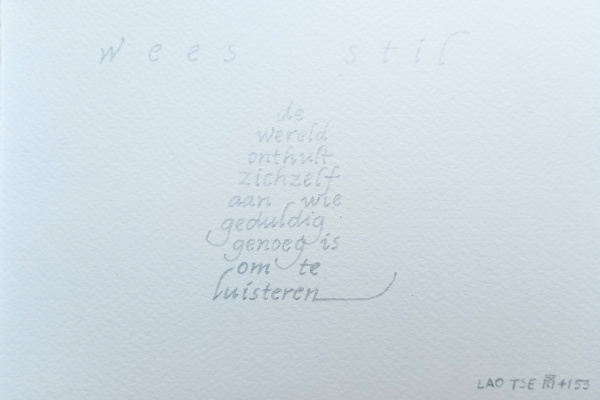 wees stil
de
wereld
onthult
zichzelf
aan wie
geduldig
genoeg is
om te
luisteren
LAO TSE 4153